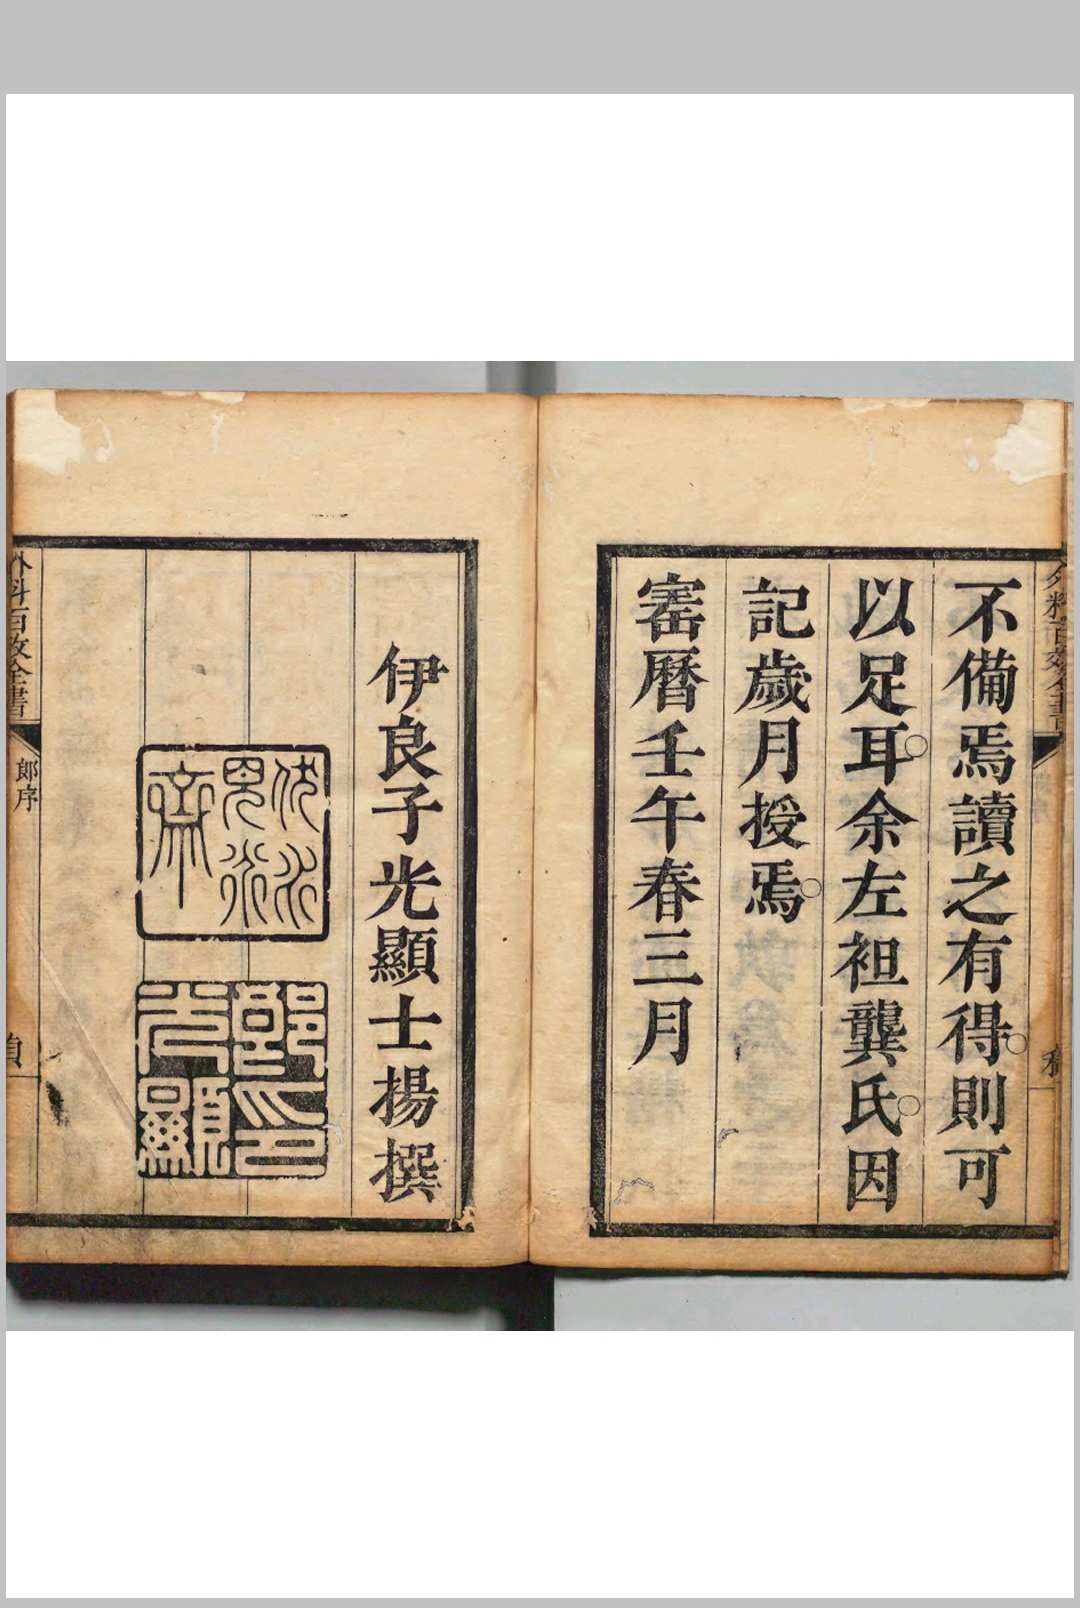 不備焉讀之有得則可
以足耳余左袒龔氏因
記歲月授焉
寚曆壬午春三月
伊良子光顯士揚撰
郎序
外科百效全書